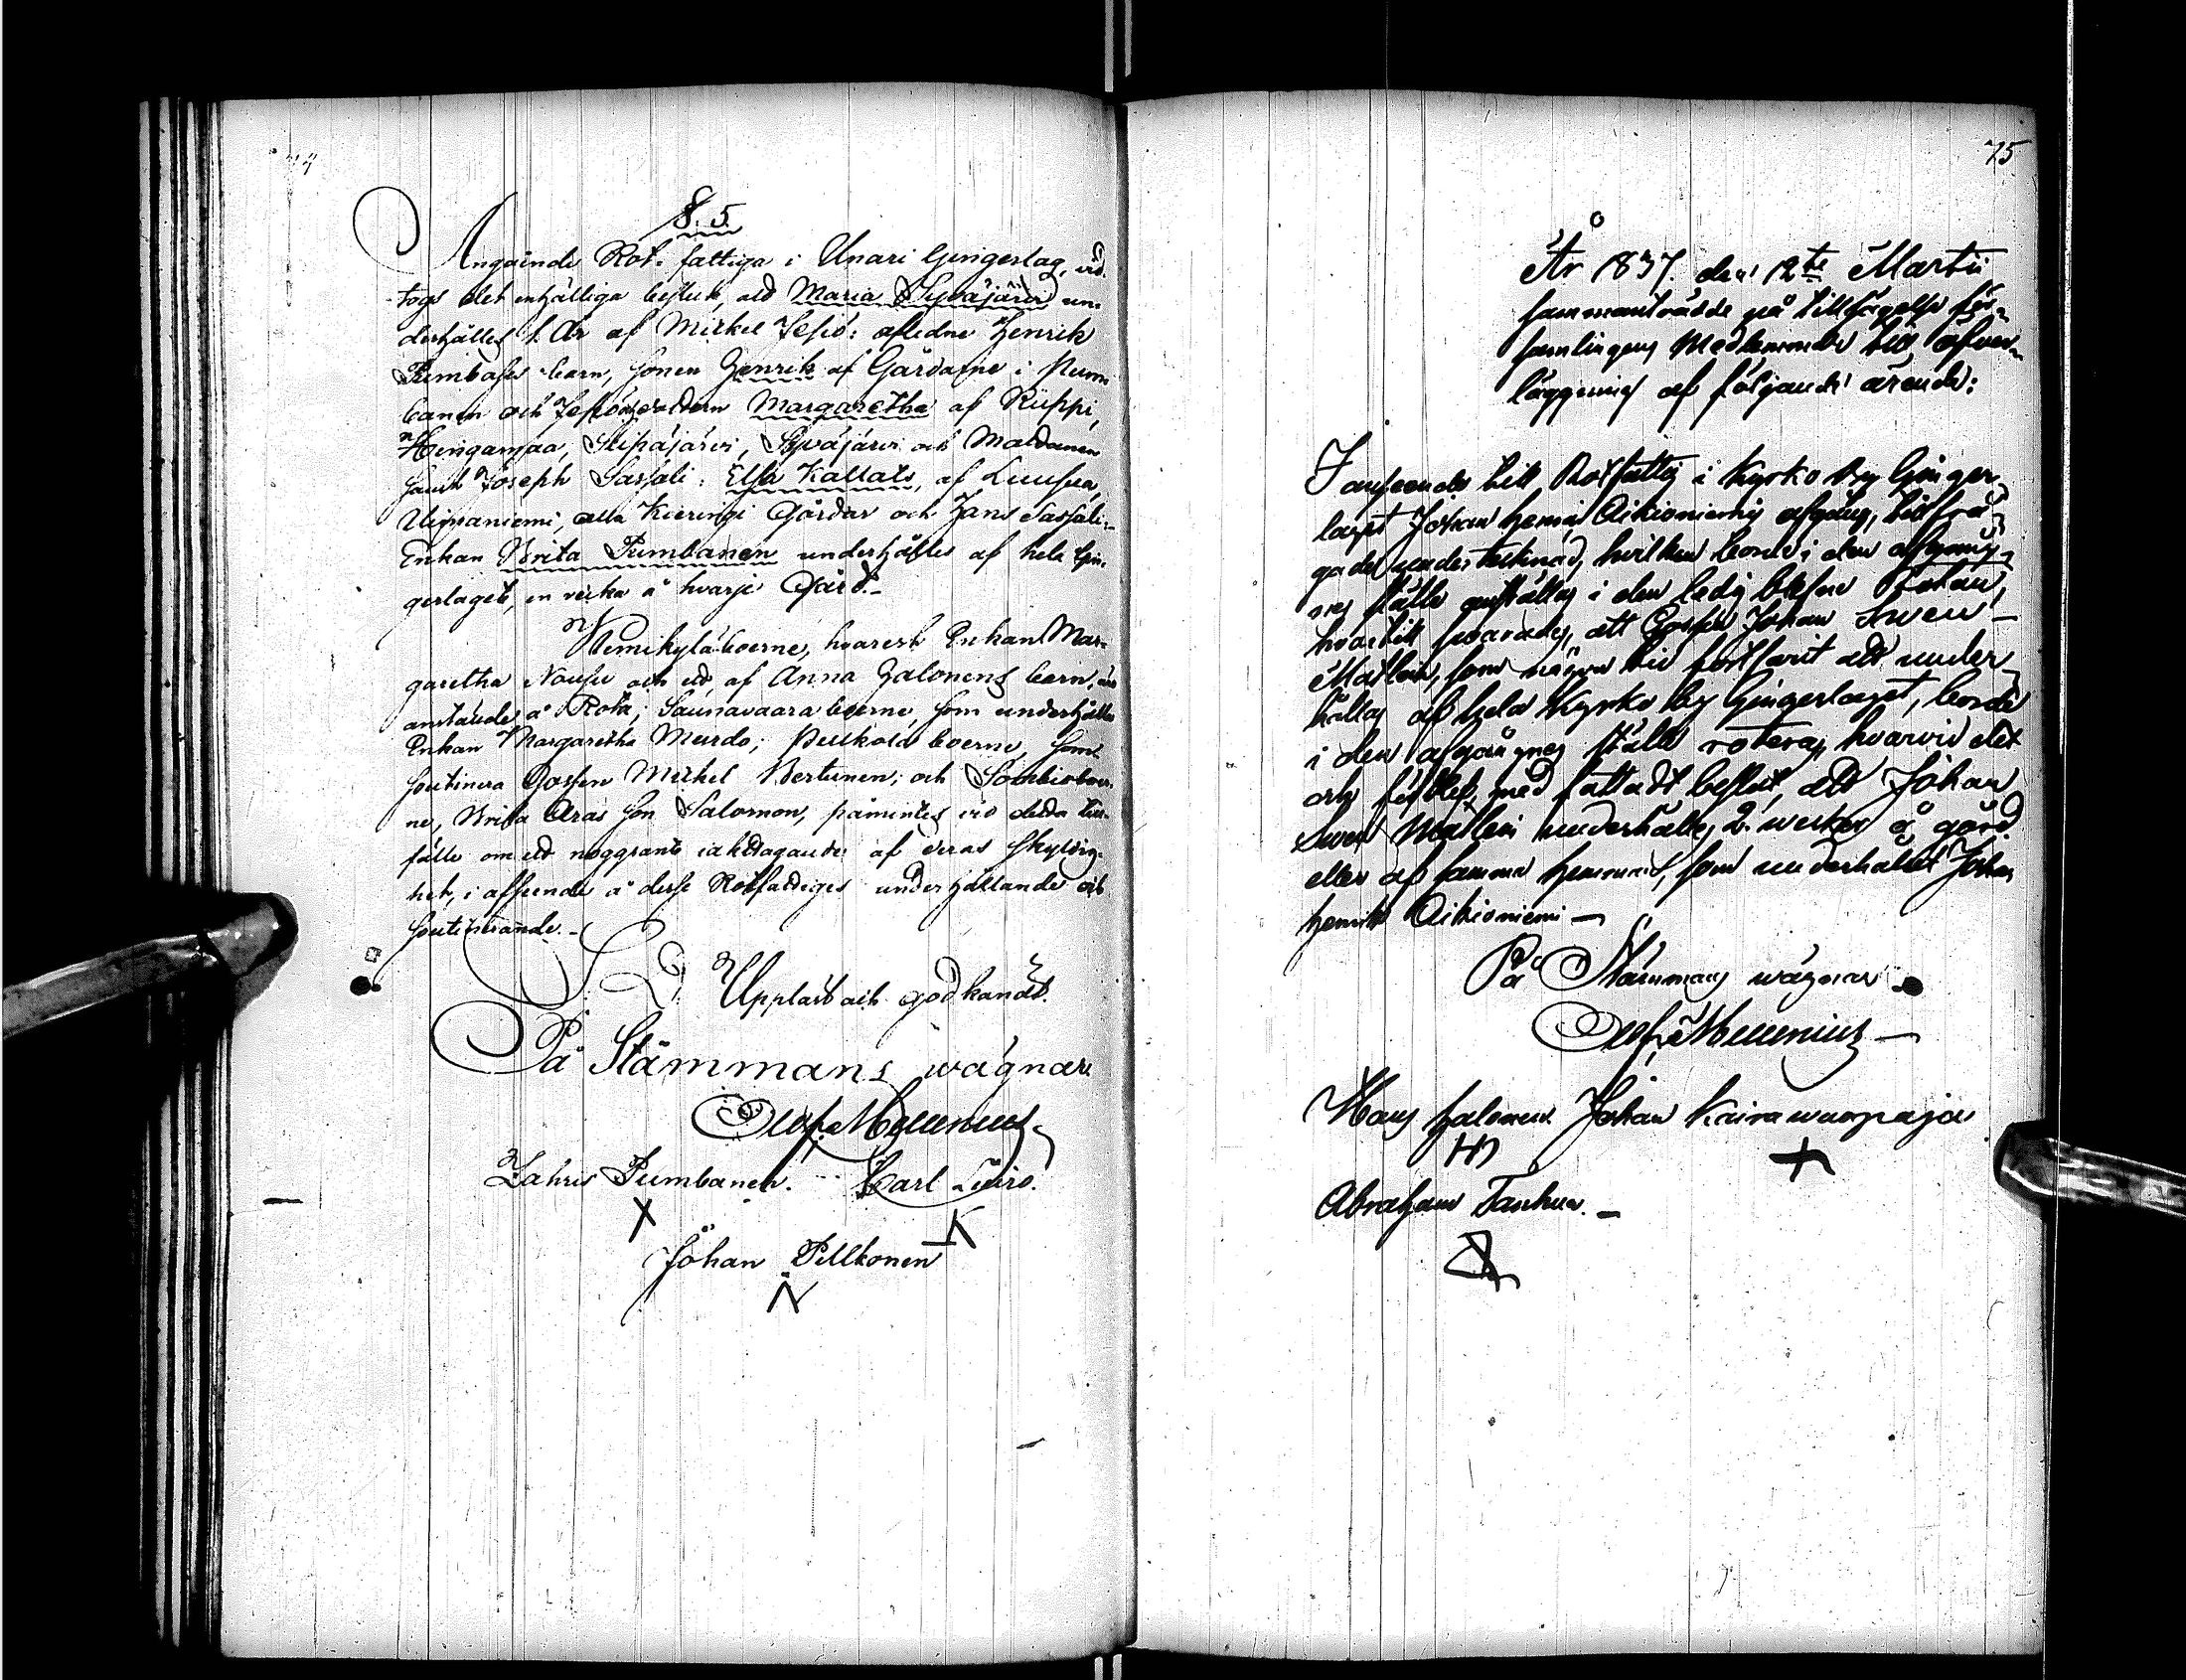 74
§. 5.
Angående Rot-fattiga i Unari Gingerlag, vid-
togs det enhälliga beslut, att Maria Syväjärvi un-
derhålles 1. År af Michel Jesiö: aflidne Henrik
Pumbases barn, sonen Henrik af Gårdarne i Pum-
banen och Jesiö, dottern Margaretha af Riippi,
Hengamaa, Siipäjärvi, Syväjärvi och Mattanen
samt Joseph Sassali; Elsa Kallats, af Luusua,
Uimaniemi, alla Kieringi Gårdar och Hans Sassali:
Enkan Brita Pumbanen underhålles af hela Gin-
gerlaget, en vecka å hvarje Gård.
Kemikylä boerne, hvarest Enkan Mar-
garetha Nousu och ett af Anna Halonens barn, äro
anstäude å Rota; Saunavaara boerne, som underhålla
Enkan Margaretha Murdo; Pelkola boerne, som
soutinera Gossen Michel Bertunen; och Sombioboer-
ne, Brita Aras son Salomon, påmintes vid detta till-
fälle om ett noggrant iakttagande af deras skyldig-
het, i afseende å desse Rotfattiges underhållande och
soutinerande.
Uppläst och godkändt.
På Stämmans wägnar
Olof Mellenius
Zahris Pumbanen. Carl Luiro.
X K
Johan Pelkonen
N
75
År 1837. den 12te Martii
sammanträdde på tillsägelse för-
samlingens Medlemmar till öfver-
läggning af följande ärende:
I anseende till Rotfattig i Kyrko by Ginger-
laget Johan Henrik Aikioniemis afgång, tillfrå-
gade undertecknad, hvilken borde i den afgång-
nes ställe anställas i den ledig blefne Rotan,
hvartill svarades, att Gossen Johan Swen
Matlein, som någon tid fortfarit att under-
hållas af hela Kyrko by Gingerlaget, borde
i den afgångnes ställe roteras, hvarvid det
och förblef, med fattadt beslut, att Johan
Swen Matlein underhålles 2. weckor å gård.
eller af samma hemman, som underhållit Johan
Henrik Aikioniemi —
På Stämmans wägnar
Olof Mellenius —
Hans Halonen Johan Kairawuopaja
HH X
Abraham Tanhua. —